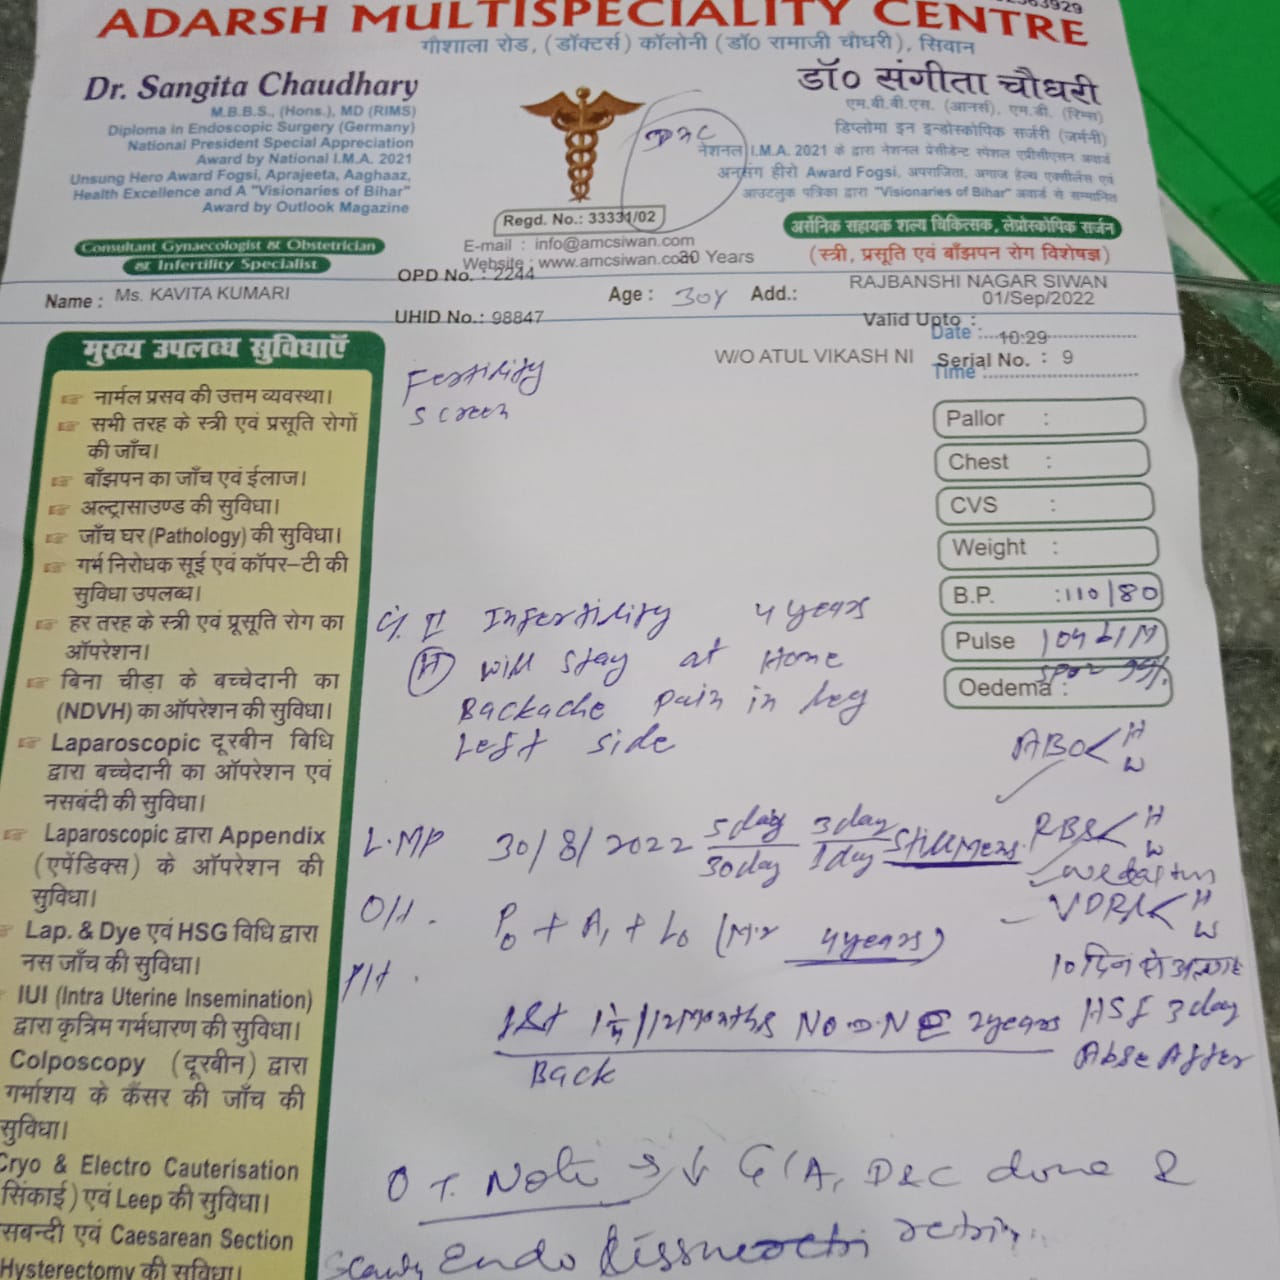 ADARSH MULTISPECIALITY CENTRE
गौशाला रोड, (डॉक्टर्स) कॉलोनी (डॉ० रामाजी चौधरी), सिवान
Dr. Sangita Chaudhary
M.B.B.S., (Hons.), MD (RIMS)
Diploma in Endoscopic Surgery (Germany)
National President Special Appreciation
Award by National I.M.A. 2021
Unsung Hero Award Fogsi, Aprajeeta, Aaghaaz,
Health Excellence and A "Visionaries of Bihar"
Award by Outlook Magazine
Consultant Gynaecologist & Obstetrician
& Infertility Specialist
Regd. No.: 33331/02
E-mail : info@amcsiwan.com
Website : www.amcsiwan.com
30 Years
डॉ० संगीता चौधरी
एम.बी.बी.एस. (आनर्स), एम.डी. (रिम्स)
डिप्लोमा इन इन्डोस्कोपिक सर्जरी (जर्मनी)
नेशनल I.M.A. 2021 के द्वारा नेशनल प्रेसीडेन्ट स्पेशल एप्रीसीएसन अवार्ड
अनसंग हीरो Award Fogsi, अपराजिता, अगाज हेल्थ एक्सीलेंस एवं
आउटलुक पत्रिका द्वारा "Visionaries of Bihar" अवार्ड से सम्मानित
अर्सेनिक सहायक शल्य चिकित्सक, लेप्रोस्कोपिक सर्जन
(स्त्री, प्रसूति एवं बाँझपन रोग विशेषज्ञ)
OPD No. : 2244
Name : Ms. KAVITA KUMARI
Age : 30Y Add.: RAJBANSHI NAGAR SIWAN
01/Sep/2022
UHID No.: 98847
Valid Upto :
Date : 10:29
W/O ATUL VIKASH NI
Serial No. : 9
Time :
मुख्य उपलब्ध सुविधाएँ
नार्मल प्रसव की उत्तम व्यवस्था।
सभी तरह के स्त्री एवं प्रसूति रोगों
की जाँच।
बाँझपन का जाँच एवं ईलाज।
अल्ट्रासाउण्ड की सुविधा।
जाँच घर (Pathology) की सुविधा।
गर्भ निरोधक सूई एवं कॉपर–टी की
सुविधा उपलब्ध।
हर तरह के स्त्री एवं प्रसूति रोग का
ऑपरेशन।
बिना चीड़ा के बच्चेदानी का
(NDVH) का ऑपरेशन की सुविधा।
Laparoscopic दूरबीन विधि
द्वारा बच्चेदानी का ऑपरेशन एवं
नसबंदी की सुविधा।
Laparoscopic द्वारा Appendix
(एपेंडिक्स) के ऑपरेशन की
सुविधा।
Lap. & Dye एवं HSG विधि द्वारा
नस जाँच की सुविधा।
IUI (Intra Uterine Insemination)
द्वारा कृत्रिम गर्भधारण की सुविधा।
Colposcopy (दूरबीन) द्वारा
गर्भाशय के कैंसर की जाँच की
सुविधा।
Cryo & Electro Cauterisation
(सिंकाई) एवं Leep की सुविधा।
सबन्दी एवं Caesarean Section
Hysterectomy की सुविधा।
Pallor :
Chest :
CVS :
Weight :
B.P. : 110/80
Pulse 104 b/M
SPO2 99%
Oedema :
Fertility
screen
II Infertility 4 years
(H) will stay at Home
Backache pain in leg
Left side
ABO< H
W
L.MP 30/8/2022 5day/30day 3day/1day Still Mens.
RBS< H
W
VDRL< H
W
O/H . P0 + A1 + L0 (M.r 4years)
10 दिन से
3 day
After
1st 12 Months 2years
Back
O T. Note G/A, D&C done &
Endo